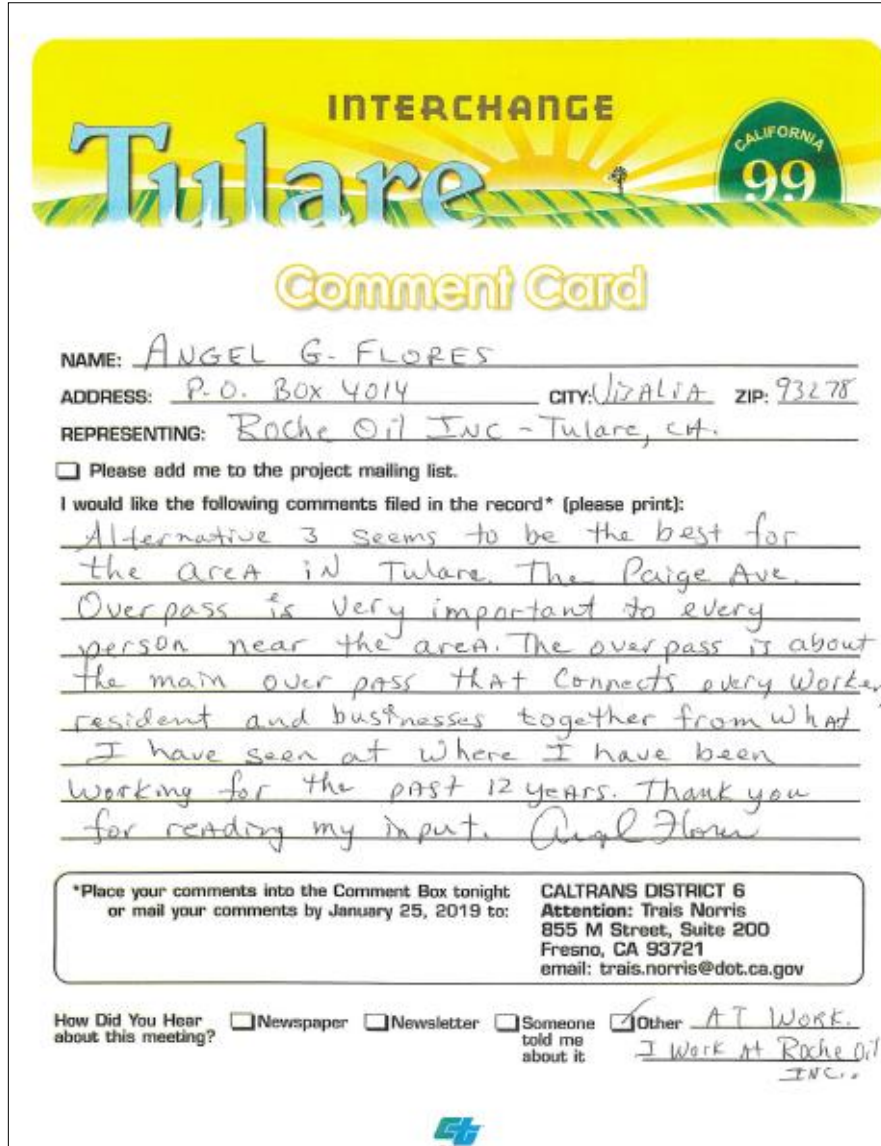 INTERCHANGE
Tulare
CALIFORNIA
99
Comment Card
NAME: ANGEL G. FLORES
ADDRESS: P.O. BOX 4014 CITY: VISALIA ZIP: 93278
REPRESENTING: Roche Oil INC - Tulare, CA.
Please add me to the project mailing list.
I would like the following comments filed in the record* (please print):
Alternative 3 seems to be the best for
the areA iN Tulare. The Paige Ave.
Overpass is very important to every
person near the areA. The over pass is about
the main over pAss thAt Connects every Worker,
resident and businesses together from whAt
I have seen at where I have been
Working for the pAst 12 yeArs. Thank you
for reAding my input. Angel Flores
*Place your comments into the Comment Box tonight
or mail your comments by January 25, 2019 to:
CALTRANS DISTRICT 6
Attention: Trais Norris
855 M Street, Suite 200
Fresno, CA 93721
email: trais.norris@dot.ca.gov
How Did You Hear about this meeting?
Newspaper
Newsletter
Someone told me about it
Other AT WORK.
I Work At Roche Oil
INC..
ct